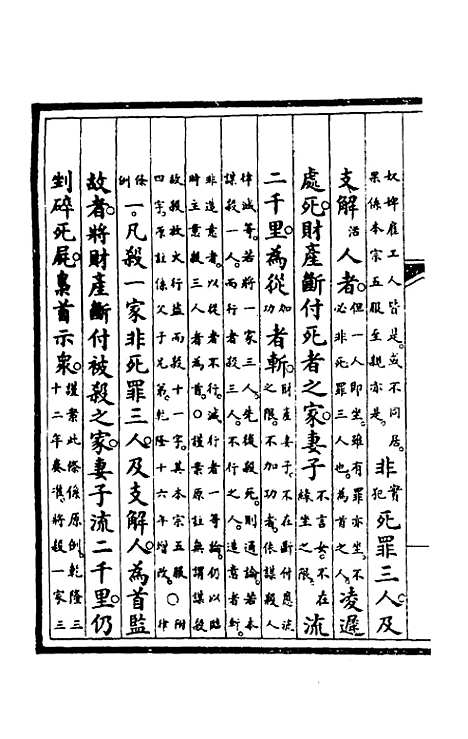 奴婢雇工人皆是或不同居果係本宗五服至親亦是非實犯死罪三人及
支解活人者但一人即坐雖有罪亦坐不必非死罪三人也為首之人凌遲
處死財產斷付死者之家妻子不言女不在緣坐之限流
二千里為從加功者斬財產妻子不在斷付應流之限不加功者依謀殺人
律減等若將一家三人先後殺死則通論若本謀殺一人而行者殺三人不行之人造意者斬
非造意者以從者不行減行者一等論仍以臨時主意殺三人者為首○謹案原註無謂謀殺
故殺放火行盜而殺十一字其本宗五服四字原註係父子兄弟乾隆十六年增改○附律
條例一凡殺一家非死罪三人及支解人為首監
故者將財產斷付被殺之家妻子流二千里仍
剉碎死屍梟首示眾謹案此條係原例乾隆三十二年奏准將殺一家三